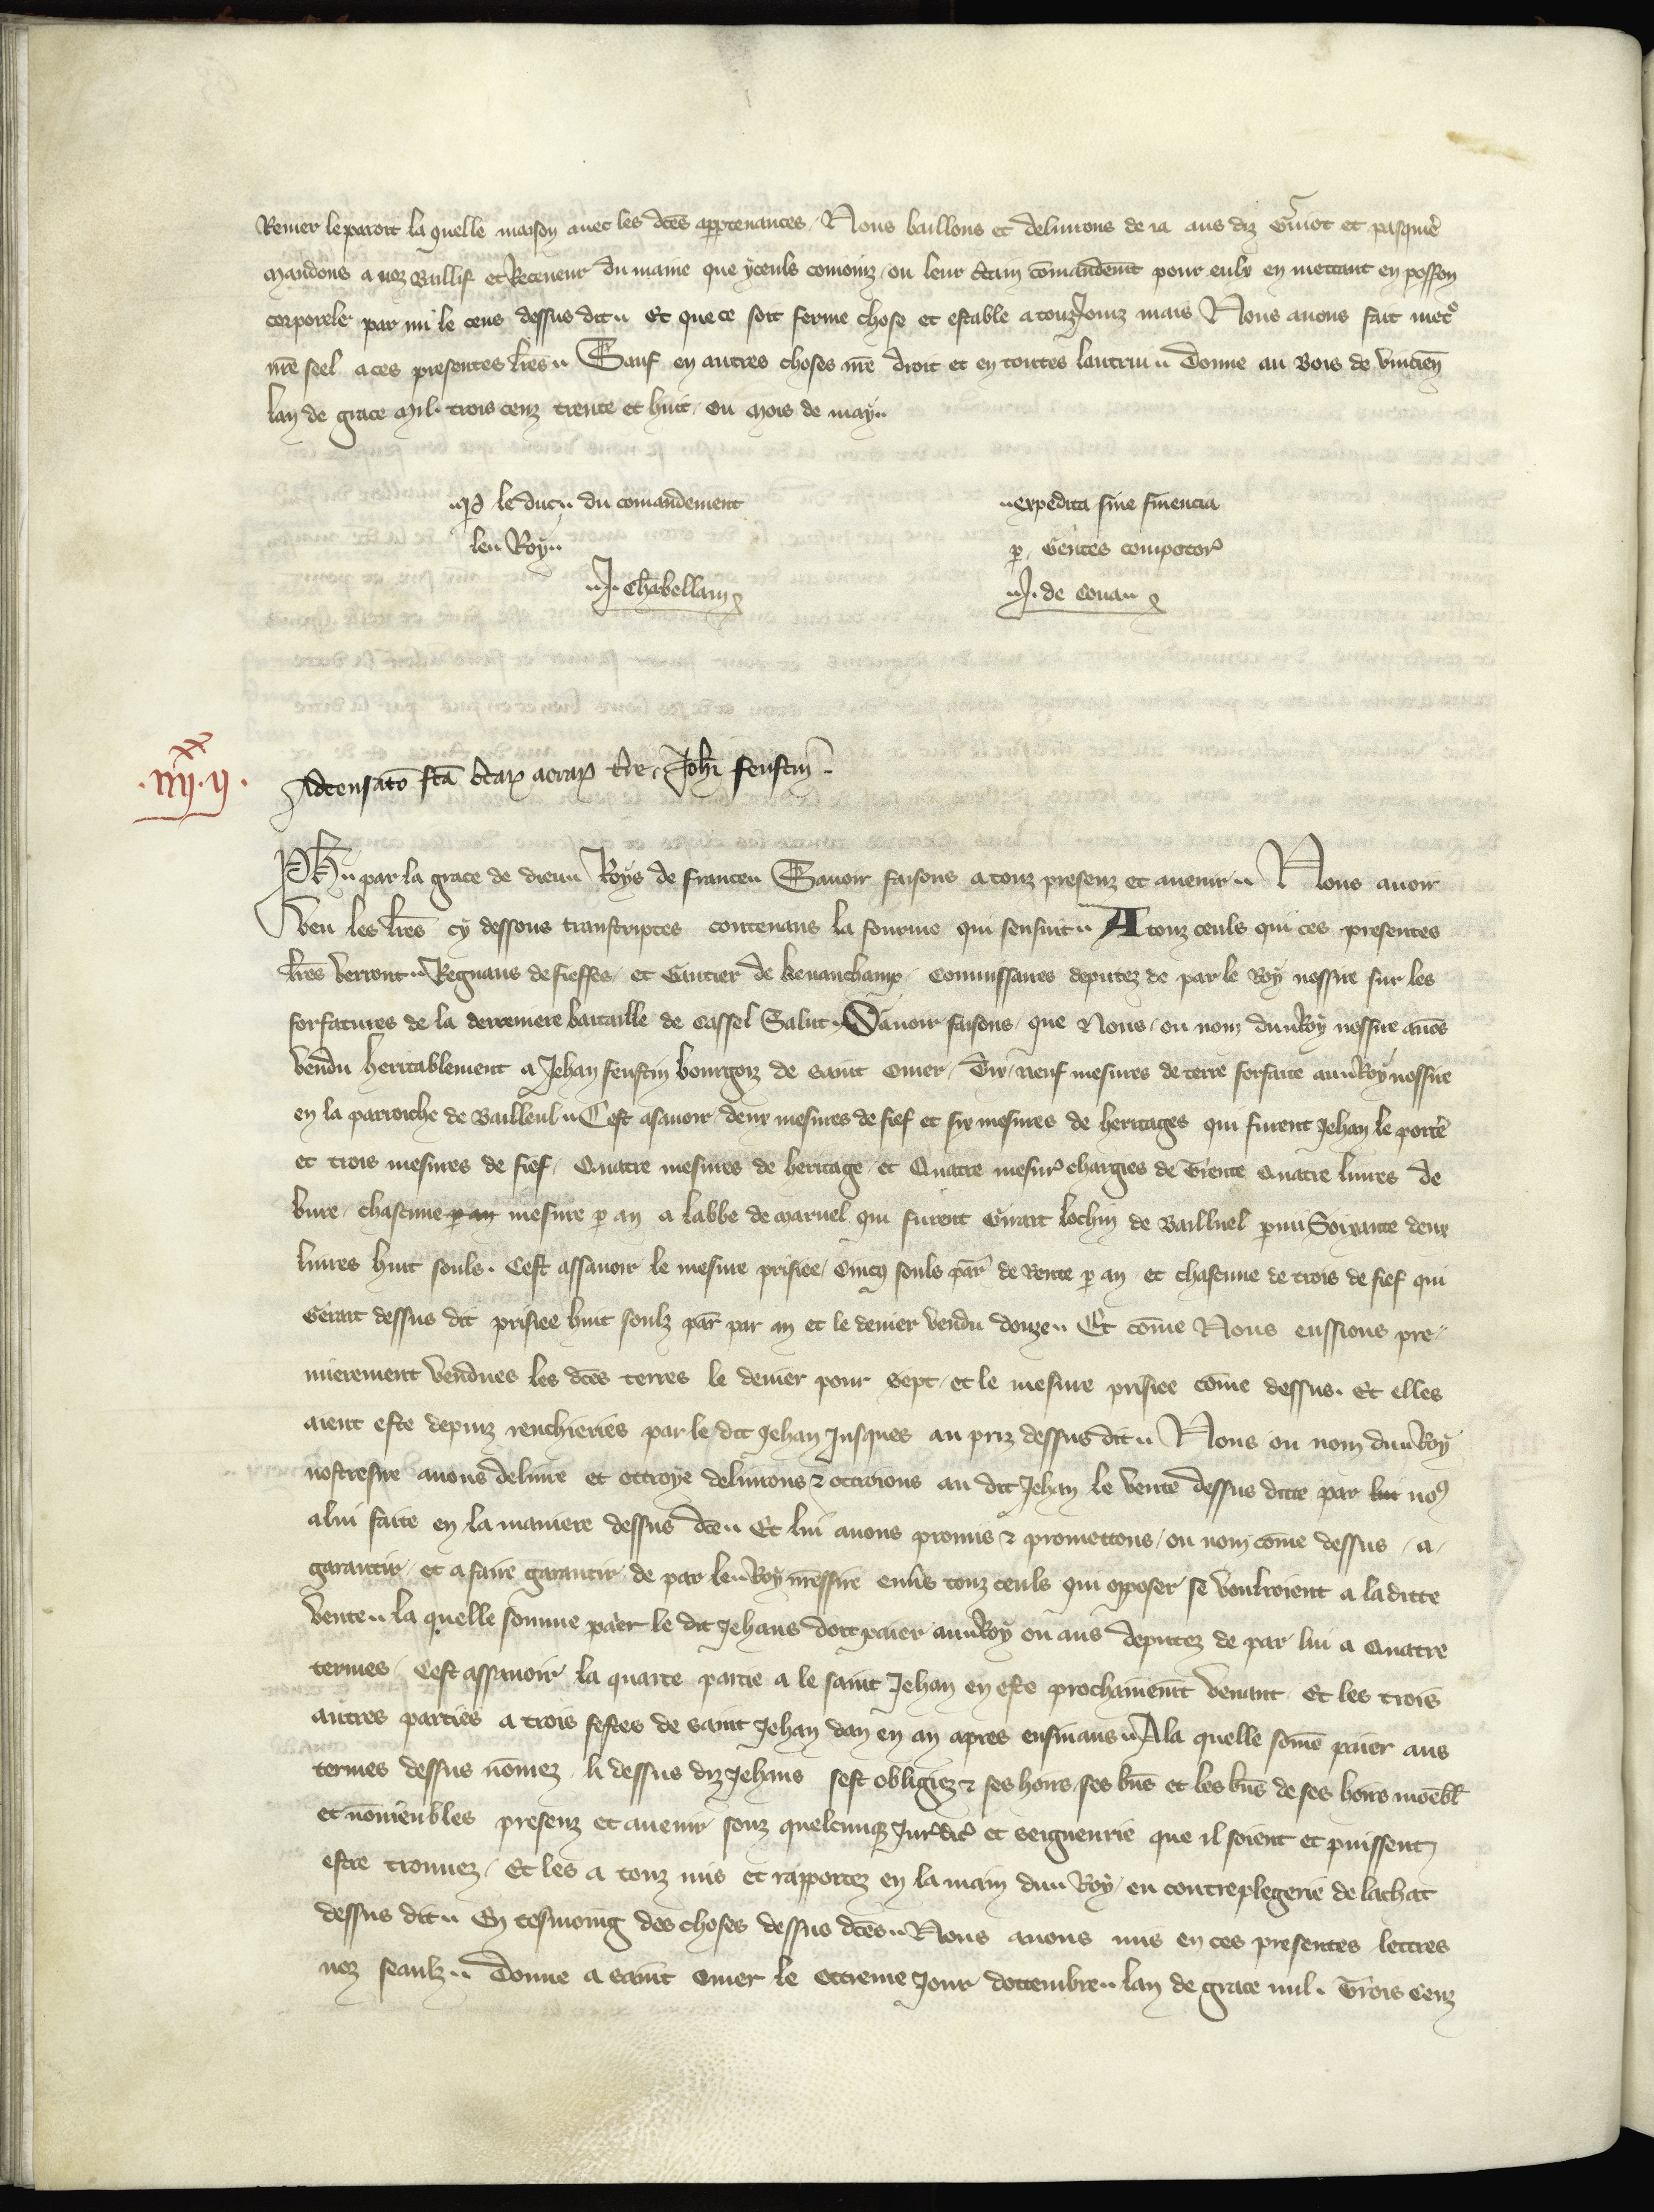 Renier le paroit la quelle maison avec les dces appartenances. Nous baillons et delivrons de ia aus diz Guiot et pasquier
Mandons a noz Baillif et Receveur du maine que yceuls comoinz ou leur ctain comandement pour eulx en mettant en possion
corporele par mi le cens dessus dit. Et que ce soit ferme chose et estable a touzjourz mais Nous avons fait mettre
nre seel a ces presentes lres. Sauf en autres choses nre droit et en toutes lautrui. Donne au Bois de vincien
lan de grace Mil. trois cenz trente et huit, ou mois de may.
P le duc. du comandement
le Roy.
expedita sine financia
p. Gentes compotor
J. Chabellam
J. de Cona
.iiijxx.ij.
Adcensato fca Johi feustin.
Ph. par la grace de dieu Roys de france. Savoir faisons a touz presenz et avenir. Nous avoir
veu les lres cy dessous transcriptes contenans la fourme qui sensuit. A touz ceuls qui ces presentes
lres verront. Regnaus de fieffes, et Gautier de kevauchamp, Commissaires deputez de par le Roy nossire sur les
forfaitures de la derreniere bataille de Cassel Salut. Savoir faisons, que Nous, ou nom du Roy nossire avos
vendu heritablement a Jehan feustin bourgoiz de saint Omer, Dix neuf mesures de terre forfaite au Roy nossire
en la parroiche de Bailleul. Cest asavoir deux mesures de fief et six mesures de heritages qui furent Jehan le porte
et trois mesures de fief, Quatre mesures de heritage, et Quatre mesur chargies de Trente Quatre livres de
bure, chascune p an mesure p an a labbe de Maruel qui furent Girart lochin de Bailluel pmi Soixante deux
livres huit souls. Cest assavoir le mesure prisiee, Cincq souls par de Rente p an, et chascune de trois de fief qui
Gerart dessus dit prisiee huit soulz par par an et le denier vendu douze. Et come Nous eussions pre
mierement vendues les dces terres le denier pour sept, et le mesure prisiee come dessus. Et elles
aient este depuiz rencheries par le dit Jehan Jusques au priz dessus dit. Nous ou nom du Roy
nostresire avons delivre et ottroye delivrons & ottroions au dit Jehan le vente dessus ditte par lui nos
a lui faite en la maniere dessus dce. Et lui avons promis & promettons, ou nom come dessus, a
garantir, et a faire garantir de par le Roy nressire envs touz ceuls qui opposer se vourroient a la ditte
vente. la quelle somme paier le dit Jehans doit paier au Roy ou aus deputez de par lui a Quatre
termes, Cest assavoir la quarte partie a le saint Jehan en este prochainemt venant, Et les trois
autres parties a trois festes de saint Jehan dan en an apres ensivans. A la quelle some paier aus
termes dessus nomez, li dessus diz Jehans sest obligiez & ses hoirs, ses bns et les bns de ses hoirs moebl
et nomeubles presenz et avenir, souz quelcunq Jurdic et seigneurie que il soient et puissent
estre trouvez, Et les a touz mis et rapportez en la main du Roy, en contreplegerie de lachat
dessus dit. En tesmoing des choses dessus dces. Nous avons mis en ces presentes lettres
noz seaulz. Donne a saint Omer le ottieme Jour dottembre. lan de grace mil. Trois Cenz